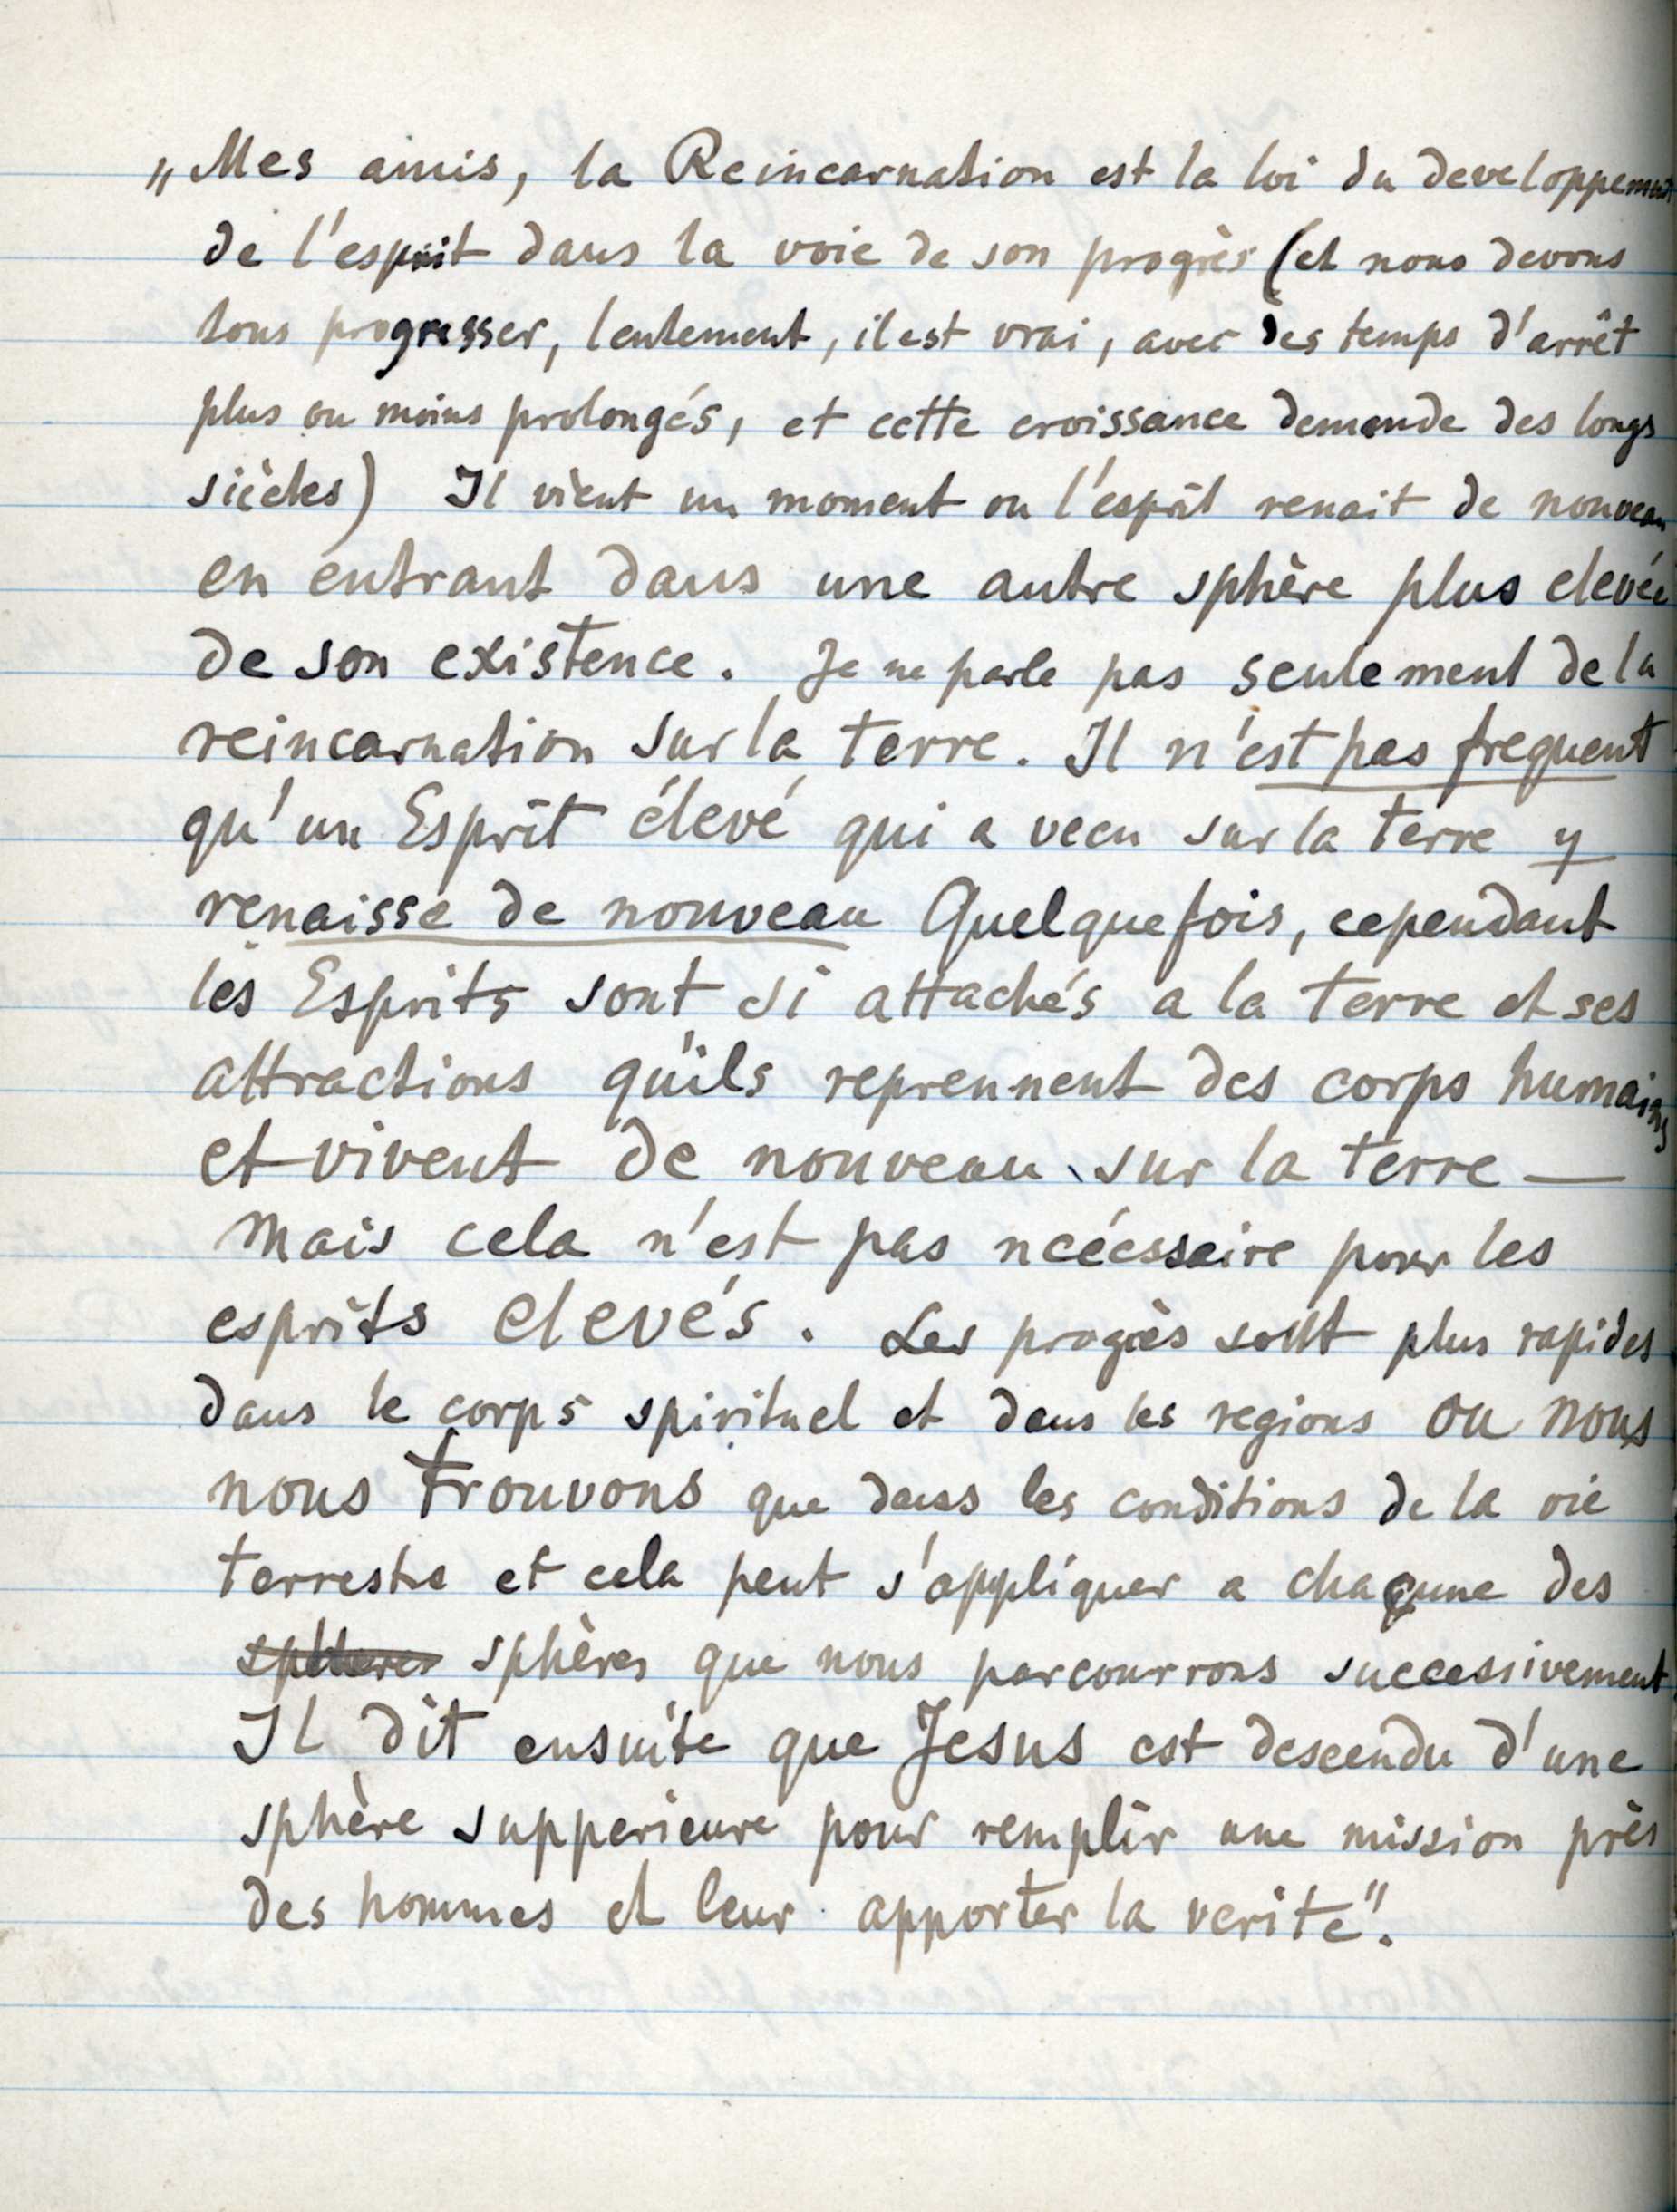 „Mes amis, la Reincarnation est la loi du developpement
de l'esprit dans la voie de son progrès (et nous devons
tous progresser, lentement, il est vrai, avec des temps d'arrêt
plus ou moins prolongés, et cette croissance demande des longs
siècles) Il vient un moment ou l'esprit renait de nouveau
en entrant dans une autre sphère plus elevée
de son existence. Je ne parle pas seulement de la
reincarnation sur la terre. Il n'est pas frequent
qu'un Esprit élevé qui a vecu sur la terre y
renaisse de nouveau Quelquefois, cependant
les Esprits sont si attachés a la terre et ses
attractions qu'ils reprennent des corps humains
et vivent de nouveau sur la terre —
mais cela n'est pas ncécssaire pour les
esprits elevés. Les progrès sont plus rapides
dans le corps spirituel et dans les regions ou nous
nous trouvons que dans les conditions de la vie
terrestre et cela peut s'appliquer a chacune des
spheres sphères que nous parcourrons successivement
Il dit ensuite que Jesus est descendu d'une
sphère supperieure pour remplir une mission près
des hommes et leur apporter la verité".